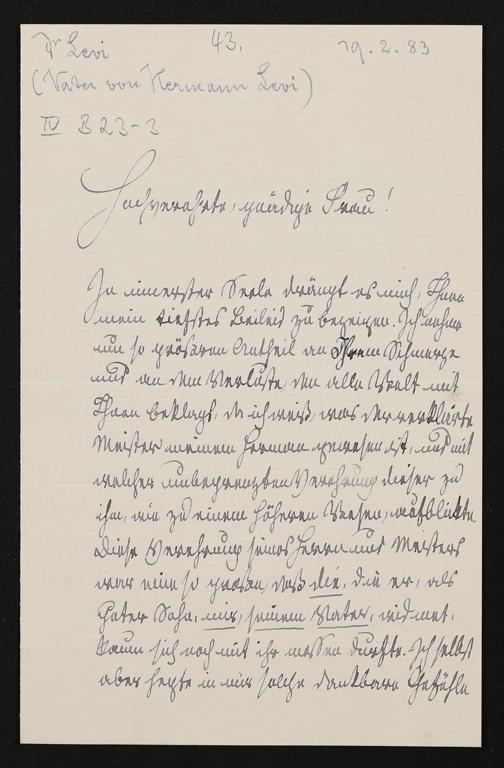 Dr Levi 43. 19.2.83
(Vater von Hermann Levi)
IV B 23-3
Hochverehrte, gnädige Frau!
In innerster Seele drängt es mich, Ihnen
mein tiefstes Beileid zu bezeigen. Ich nehme
um so größeren Antheil an Ihrem Schmerze
und an dem Verluste, den alle Welt mit
Ihnen beklagt, da ich weiß, was der verklärte
Meister meinem Hermann gewesen ist, und mit
welcher unbegrenzten Verehrung dieser zu
ihm, wie zu einem höheren Wesen, aufblickte.
Diese Verehrung seines Herrn und Meisters
war eine so große, daß die, die er, als
guter Sohn, mir, seinem Vater, widmet,
kaum sich noch mit ihr messen durfte. Ich selbst
aber hegte in mir solche dankbare Gefühle